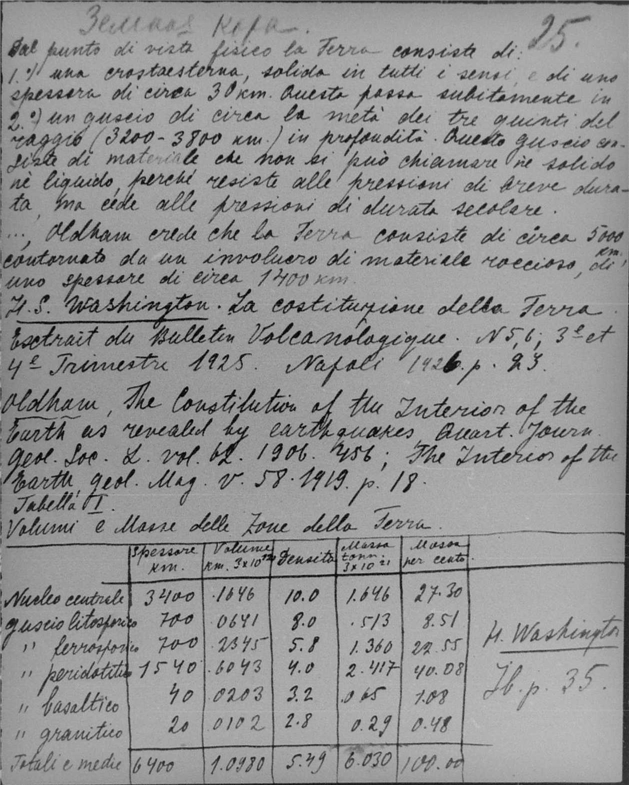 Земная кора.
25.
Dal punto di vista fisico la Terra consiste di:
1.°) una crostaesterna, solida in tutti i sensi, e di uno
spessora di circa 30 km. Questa passa subitamente in
2.°) un guscio di circa la metà dei tre quinti del
raggio (3200-3800 km.) in profondità. Questo guscio con-
siste di materiale che non si può chiamare nè solido
nè liquido, perchè resiste alle pressioni di breve dura-
ta, ma cede alle pressioni di durata secolare.
..., Oldham crede che la Terra consiste di circa 5000 km,
contornato da un involucro di materiale roccioso, di
uno spessore di circa 1400 km.
H.S. Washington. La costituzione della Terra.
Esctrait du Bulletin Volcanologique. N 5,6; 3e et
4e Trimestre 1925. Napoli 1926. p. 23.
Oldham, The Constitution of the Interior of the
Earth as revealed by earthquakes. Quart. Journ.
Geol. Soc. L. vol. 62. 1906. 456; The Interior of the
Earth, Geol. Mag. v. 58. 1919. p. 18.
Tabella I.
Volumi e Masse delle Zone della Terra.
Spessore km. Volume km. 3x10 Densita Massa tonn. 3x10 21 Massa per cento.
Nucleo centrale 3400 .1646 10.0 1.646 27.30
guscio litosporico 700 .0641 8.0 .513 8.51
" ferrosporico 700 .2345 5.8 1.360 22.55
" peridotitico 1540 .6043 4.0 2.417 40.08
" basaltico 40 0203 3.2 065 1.08
" granitico 20 0102 2.8 0.29 0.48
Totali e medie 6400 1.0980 5.49 6.030 100.00
H. Washington
Ib. p. 35.